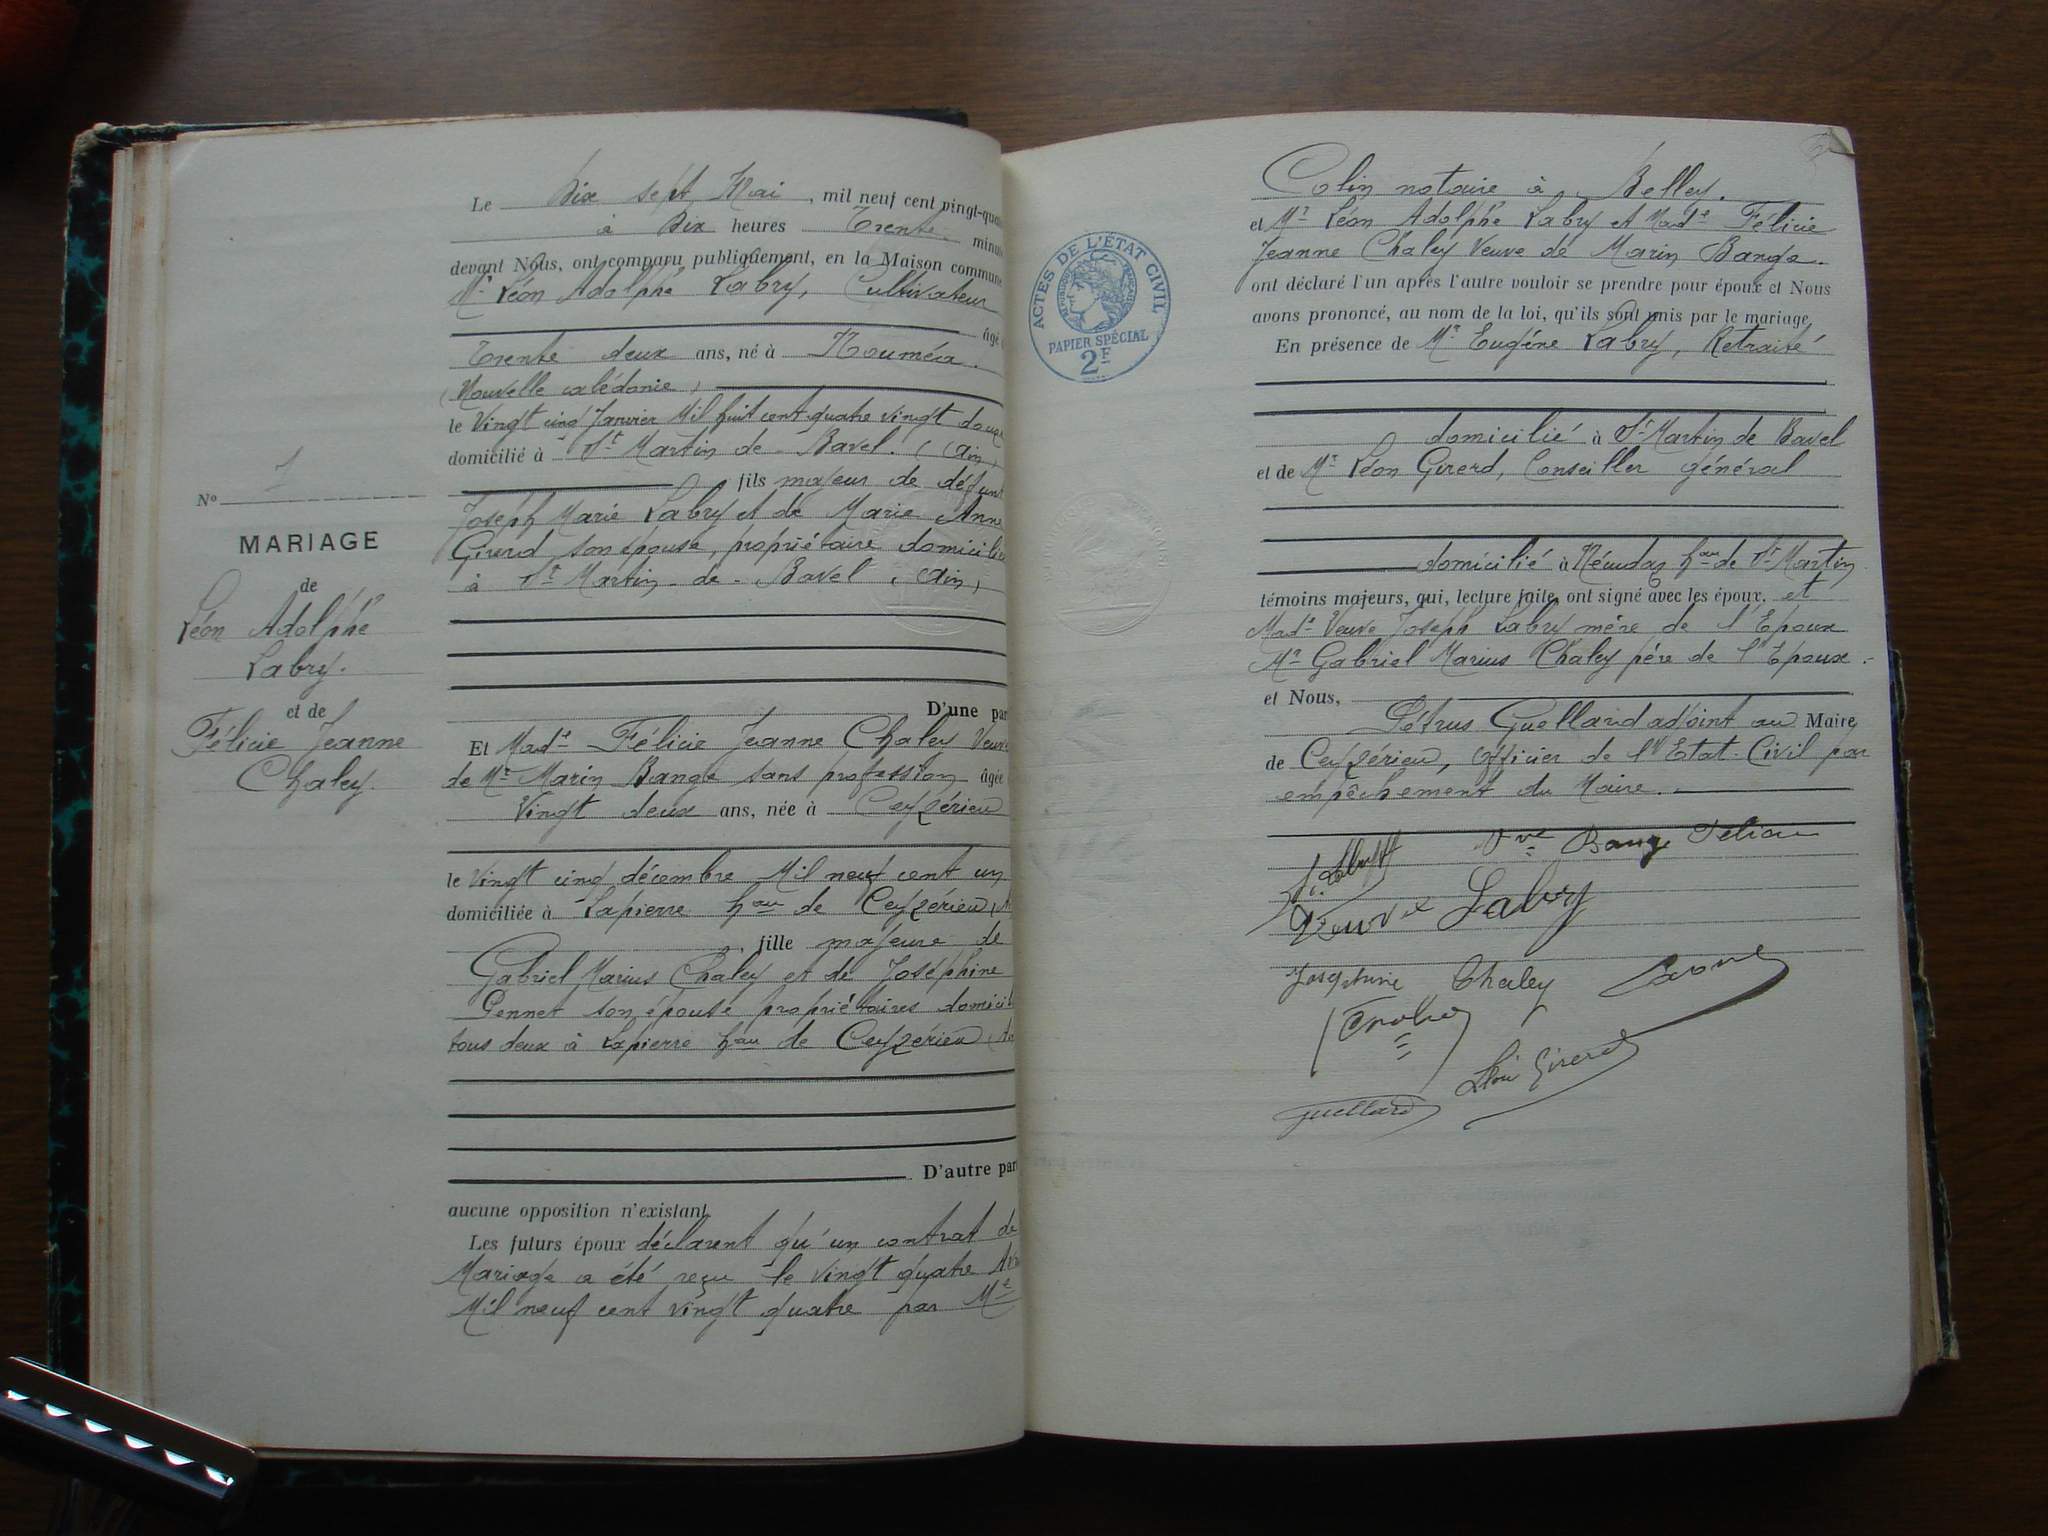 Nº 7
MARIAGE
de
Léon Adolphe
Labry.
et de
Félicie Jeanne
Chaley.
Le Dix sept Mai, mil neuf cent vingt-qua
à Dix heures Trente minu
devant Nous, ont comparu publiquement, en la Maison commune
Mr Léon Adolphe Labry, Cultivateur
âgé
Trente deux ans, né à Nouméa.
(Nouvelle calédonie)
le Vingt cinq Janvier Mil huit cent quatre vingt douze
domicilié à St Martin de - Bavel. (Ain)
fils majeur de défunt
Joseph Marie Labry et de Marie Anne
Girerd son épouse, propriétaire domicilié
à St Martin - de - Bavel, (Ain)
D'une par
Et Made Félicie Jeanne Chaley Veuve
de Mr Marin Bange sans profession âgée
Vingt deux ans, née à Ceyzérieu
le Vingt cinq décembre Mil neuf cent un
domiciliée à Lapierre hau de Ceyzérieu (A
, fille majeure de
Gabriel Marius Chaley et de Joséphine
Gennet son épouse propriétaires domicil
tous deux à Lapierre hau de Ceyzérieu (A
D'autre par
aucune opposition n'existant
Les futurs époux déclarent qu'un contrat de
Mariage a été reçu le vingt quatre Avr
Mil neuf cent vingt quatre par Me
ACTES DE L'ÉTAT CIVIL
PAPIER SPÉCIAL
2F
Colin notaire à Belley.
et Mr Léon Adolphe Labry et Made Félicie
Jeanne Chaley Veuve de Marin Bange.
ont déclaré l'un après l'autre vouloir se prendre pour époux et Nous
avons prononcé, au nom de la loi, qu'ils sont unis par le mariage.
En présence de Mr Eugéne Labry, Retraité
domicilié à St Martin de Bavel
et de Mr Léon Girerd, Conseiller général
domicilié à hau de St Martin
témoins majeurs, qui, lecture faite, ont signé avec les époux, et
Made Veuve Joseph Labry mére de l'Epoux
Mr Gabriel Marius Chaley pére de l'Epouse.
et Nous,
Pétrus Guellard adjoint au Maire
de Ceyzérieu, officier de l'Etat-Civil par
empêchement du Maire.
L. Labry Vve Bange Félicie
Veuve Labry
Joséphine Chaley
Léon Girerd
Guellard